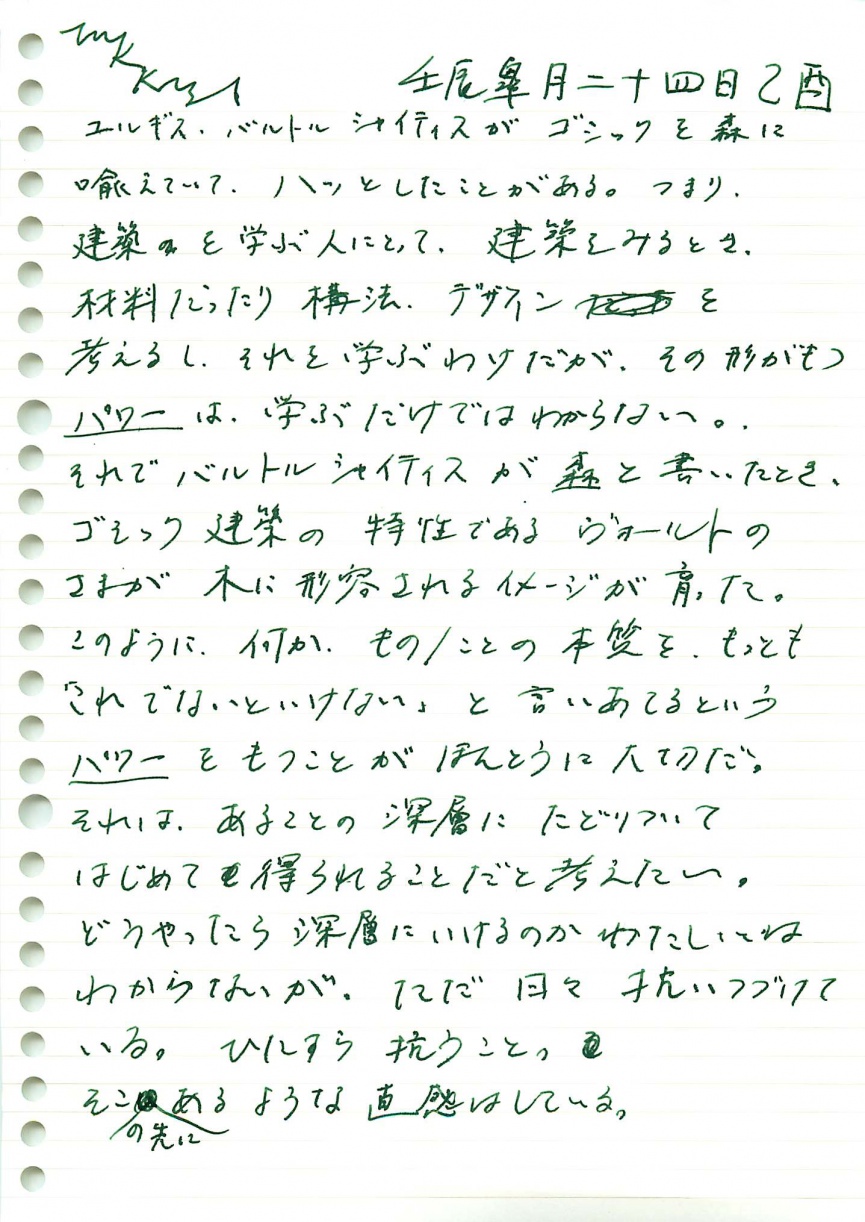 壬辰皐月二十四日乙酉
ユルギス・バルトルシャイティスが ゴシックを森に
喩えていて、ハッとしたことがある。つまり、
建築を学ぶ人にとって、建築をみるとき、
材料だったり構法、デザインを
考えるし、それを学ぶわけだが、その形がもつ
パワーは、学ぶだけではわからない。
それでバルトルシャイティスが森と書いたとき、
ゴシック建築の特性であるヴォールトの
さまが木に形容されるイメージが育った。
このように、何か、もの/ことの本質を、もっとも
「これでないといけない」と言いあてるという
パワーをもつことがほんとうに大切だ。
それは、あることの深層にたどりついて
はじめて得られることだと考えたい。
どうやったら深層にいけるのかわたしには
わからないが、ただ日々抗いつづけて
いる。ひたすら抗うこと。
その先にあるような直感はしている。